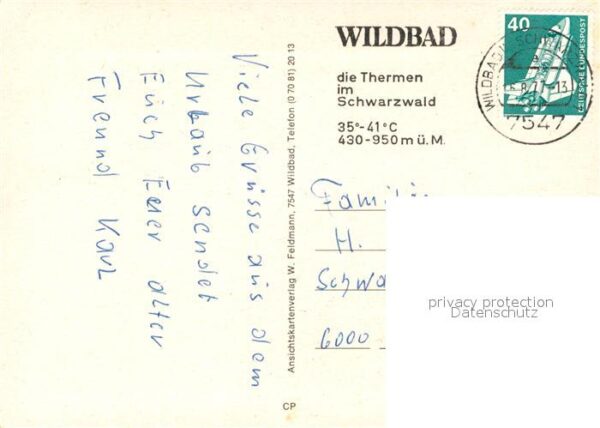 Viele Grüsse aus dem
Urlaub sendet
Euch Euer alter
Freund Karl
Ansichtskartenverlag W. Feldmann, 7547 Wildbad, Telefon (0 70 81) 20 13
CP
WILDBAD
die Thermen
im
Schwarzwald
35°-41°C
430-950 m ü. M.
40
DEUTSCHE BUNDESPOST
WILDBAD
-13
7547
Famili
H.
Schwa
6000
privacy protection
Datenschutz